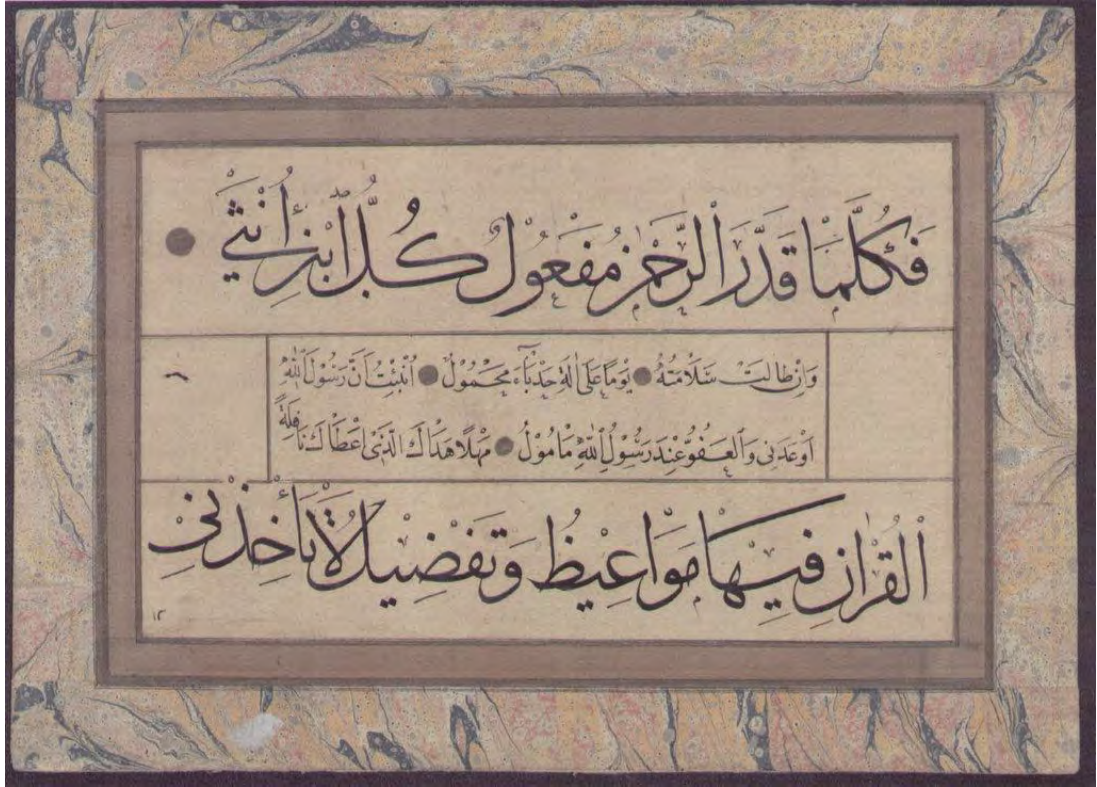 فَكُلَّمَا قَدَّرَ الرَّحْمٰنُ مَفْعُولٌ كُلُّ ابْنِ اُنْثٰى
وَاِنْ طَالَتْ سَلَامَتُهُ يَوْمًا عَلٰى اٰلَةٍ حَدْبَاءَ مَحْمُولٌ اُنْبِئْتُ اَنَّ رَسُولَ اللّٰهِ
اَوْعَدَنِى وَالْعَفْوُ عِنْدَ رَسُولِ اللّٰهِ مَامُولُ مَهْلًا هَدَاكَ الَّذِى اَعْطَاكَ نَافِلَةَ
الْقُرْاٰنِ فِيهَا مَوَاعِيظُ وَتَفْضِيلُ لَا تَأْخُذَنِّى
١٢